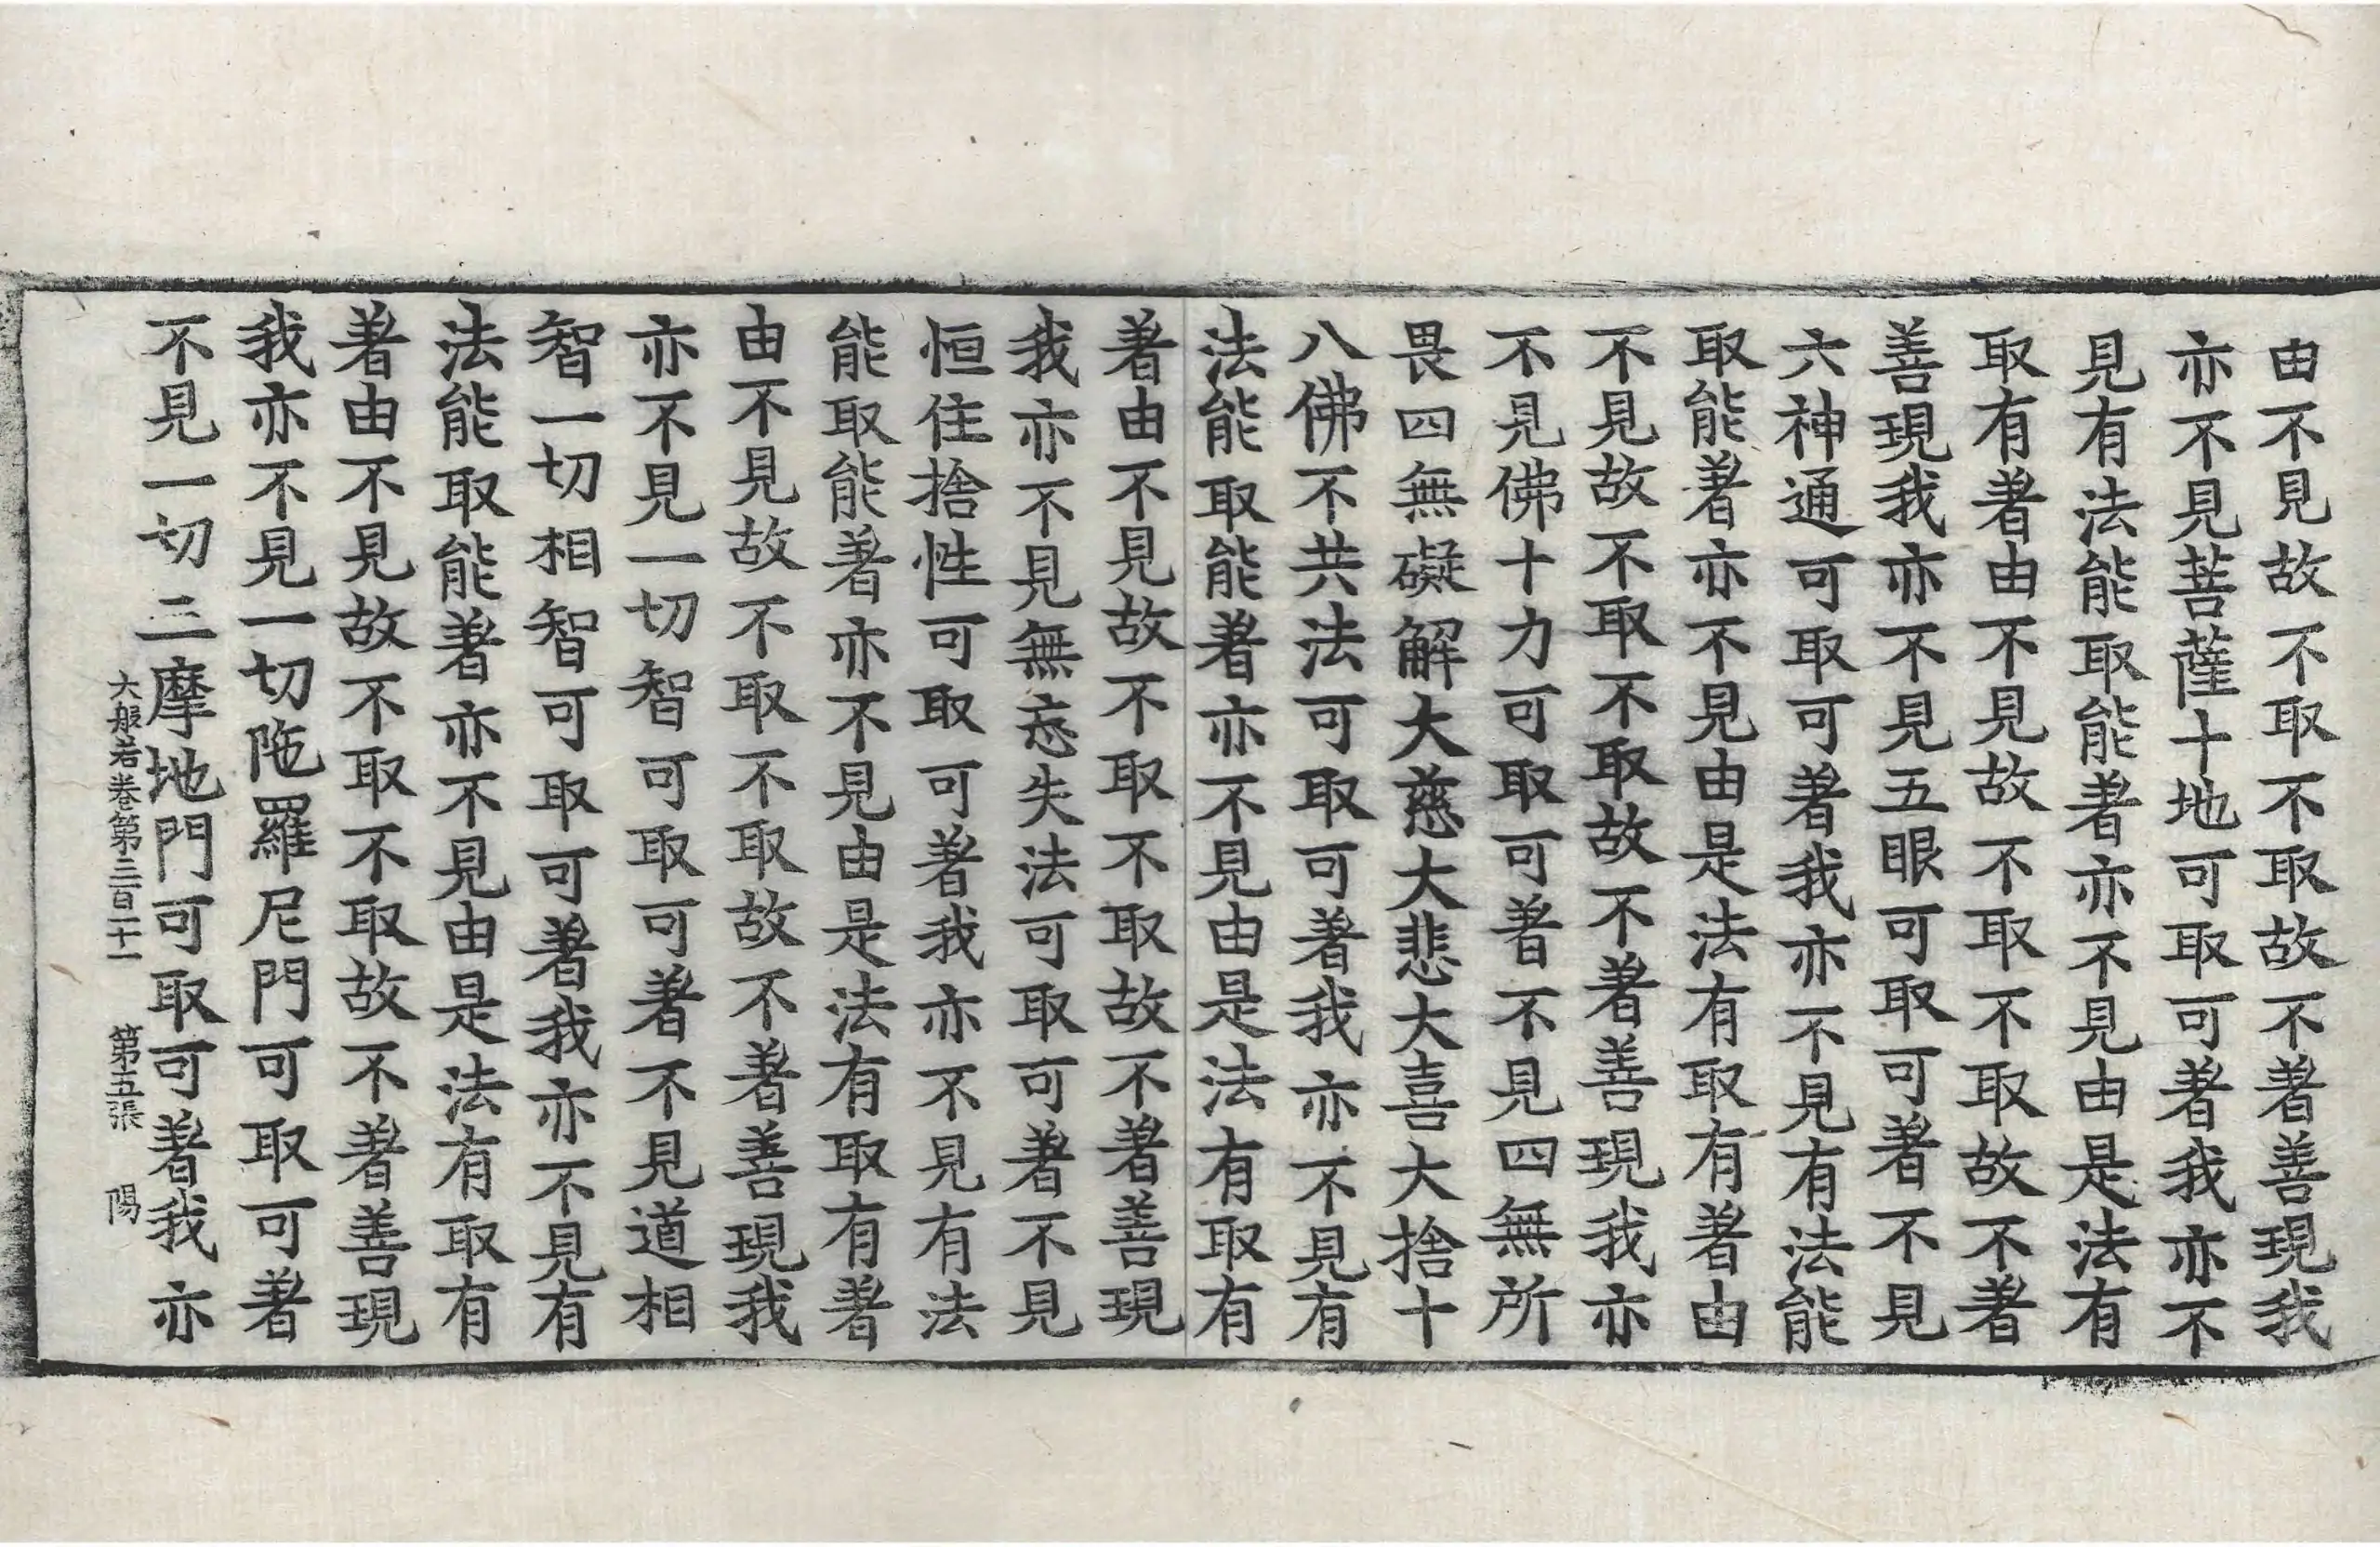 由不見故不取不取故不著善現我
亦不見菩薩十地可取可著我亦不
見有法能取能著亦不見由是法有
取有著由不見故不取不取故不著
善現我亦不見五眼可取可著不見
六神通可取可著我亦不見有法能
取能著亦不見由是法有取有著由
不見故不取不取故不著善現我亦
不見佛十力可取可著不見四無所
畏四無礙解大慈大悲大喜大捨十
八佛不共法可取可著我亦不見有
法能取能著亦不見由是法有取有
著由不見故不取不取故不著善現
我亦不見無忘失法可取可著不見
恒住捨性可取可著我亦不見有法
能取能著亦不見由是法有取有著
由不見故不取不取故不著善現我
亦不見一切智可取可著不見道相
智一切相智可取可著我亦不見有
法能取能著亦不見由是法有取有
著由不見故不取不取故不著善現
我亦不見一切陁羅尼門可取可著
不見一切三摩地門可取可著我亦
大般若卷第三百二十一 第五張 陽